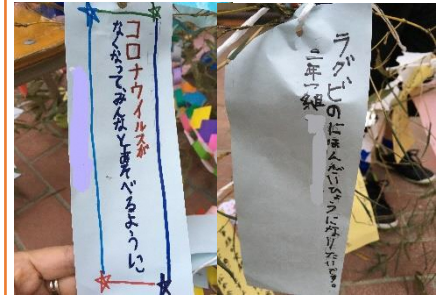 コロナウイルスが
なくなって、みんなとあそべるように
ラグビーのにほんだいひょうになりたいです。
二年一組